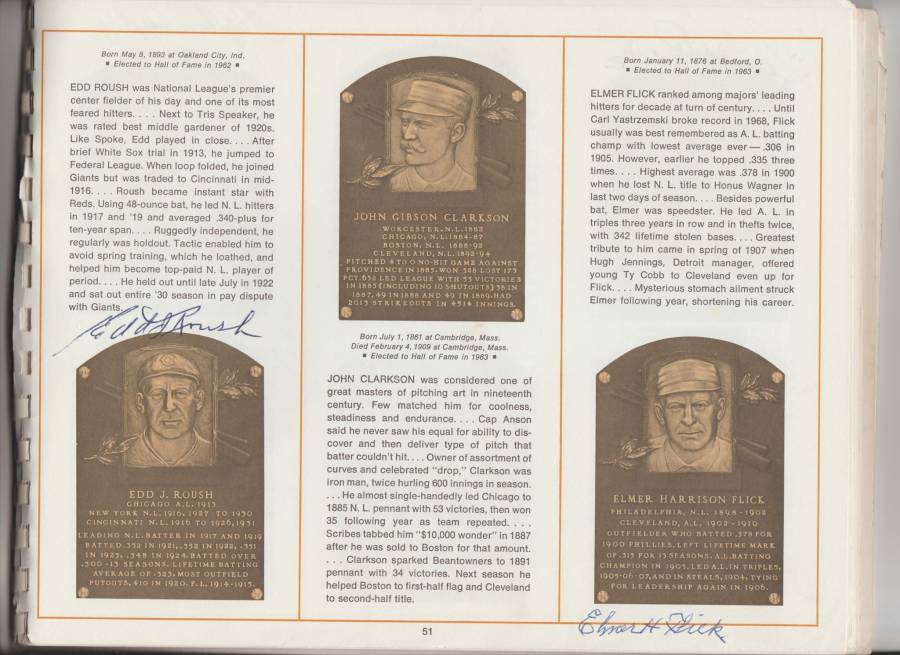 Born May 8, 1893 at Oakland City, Ind.
■ Elected to Hall of Fame in 1962 ■
EDD ROUSH was National League's premier
center fielder of his day and one of its most
feared hitters. . . . Next to Tris Speaker, he
was rated best middle gardener of 1920s.
Like Spoke, Edd played in close. . . . After
brief White Sox trial in 1913, he jumped to
Federal League. When loop folded, he joined
Giants but was traded to Cincinnati in mid-
1916. . . . Roush became instant star with
Reds. Using 48-ounce bat, he led N. L. hitters
in 1917 and '19 and averaged .340-plus for
ten-year span. . . . Ruggedly independent, he
regularly was holdout. Tactic enabled him to
avoid spring training, which he loathed, and
helped him become top-paid N. L. player of
period. . . . He held out until late July in 1922
and sat out entire '30 season in pay dispute
with Giants.
Edd J Roush
EDD J. ROUSH
CHICAGO A.L. 1913
NEW YORK N.L. 1916, 1927 TO 1930
CINCINNATI N.L. 1916 TO 1926, 1931
LEADING N.L. BATTER IN 1917 AND 1919
BATTED .352 IN 1921, .352 IN 1922, .351
IN 1923, .348 IN 1924. BATTED OVER
.300-13 SEASONS. LIFETIME BATTING
AVERAGE OF .323. MOST OUTFIELD
PUTOUTS, 410 IN 1920. F.L. 1914-1915.
JOHN GIBSON CLARKSON
WORCESTER, N.L. 1882
CHICAGO, N.L. 1884-87
BOSTON, N.L. 1888-92
CLEVELAND, N.L. 1892-94
PITCHED 4 TO 0 NO-HIT GAME AGAINST
PROVIDENCE IN 1885. WON 328 LOST 175
PCT. .652 LED LEAGUE WITH 53 VICTORIES
IN 1885 (INCLUDING 10 SHUTOUTS) 38 IN
1887, 49 IN 1888 AND 49 IN 1889. HAD
2013 STRIKEOUTS IN 4514 INNINGS.
Born July 1, 1861 at Cambridge, Mass.
Died February 4, 1909 at Cambridge, Mass.
■ Elected to Hall of Fame in 1963 ■
JOHN CLARKSON was considered one of
great masters of pitching art in nineteenth
century. Few matched him for coolness,
steadiness and endurance. . . . Cap Anson
said he never saw his equal for ability to dis-
cover and then deliver type of pitch that
batter couldn't hit. . . . Owner of assortment of
curves and celebrated "drop," Clarkson was
iron man, twice hurling 600 innings in season.
. . . He almost single-handedly led Chicago to
1885 N. L. pennant with 53 victories, then won
35 following year as team repeated. . . .
Scribes tabbed him "$10,000 wonder" in 1887
after he was sold to Boston for that amount.
. . . Clarkson sparked Beantowners to 1891
pennant with 34 victories. Next season he
helped Boston to first-half flag and Cleveland
to second-half title.
Born January 11, 1876 at Bedford, O.
■ Elected to Hall of Fame in 1963 ■
ELMER FLICK ranked among majors' leading
hitters for decade at turn of century. . . . Until
Carl Yastrzemski broke record in 1968, Flick
usually was best remembered as A. L. batting
champ with lowest average ever — .306 in
1905. However, earlier he topped .335 three
times. . . . Highest average was .378 in 1900
when he lost N. L. title to Honus Wagner in
last two days of season. . . . Besides powerful
bat, Elmer was speedster. He led A. L. in
triples three years in row and in thefts twice,
with 342 lifetime stolen bases. . . . Greatest
tribute to him came in spring of 1907 when
Hugh Jennings, Detroit manager, offered
young Ty Cobb to Cleveland even up for
Flick. . . . Mysterious stomach ailment struck
Elmer following year, shortening his career.
ELMER HARRISON FLICK
PHILADELPHIA, N.L. 1898-1902
CLEVELAND, A.L. 1902-1910
OUTFIELDER WHO BATTED .378 FOR
1900 PHILLIES. LEFT LIFETIME MARK
OF .315 FOR 13 SEASONS. A.L. BATTING
CHAMPION IN 1905. LED A.L. IN TRIPLES,
1905-06-07, AND IN STEALS, 1904, TYING
FOR LEADERSHIP AGAIN IN 1906.
Elmer H Flick
51